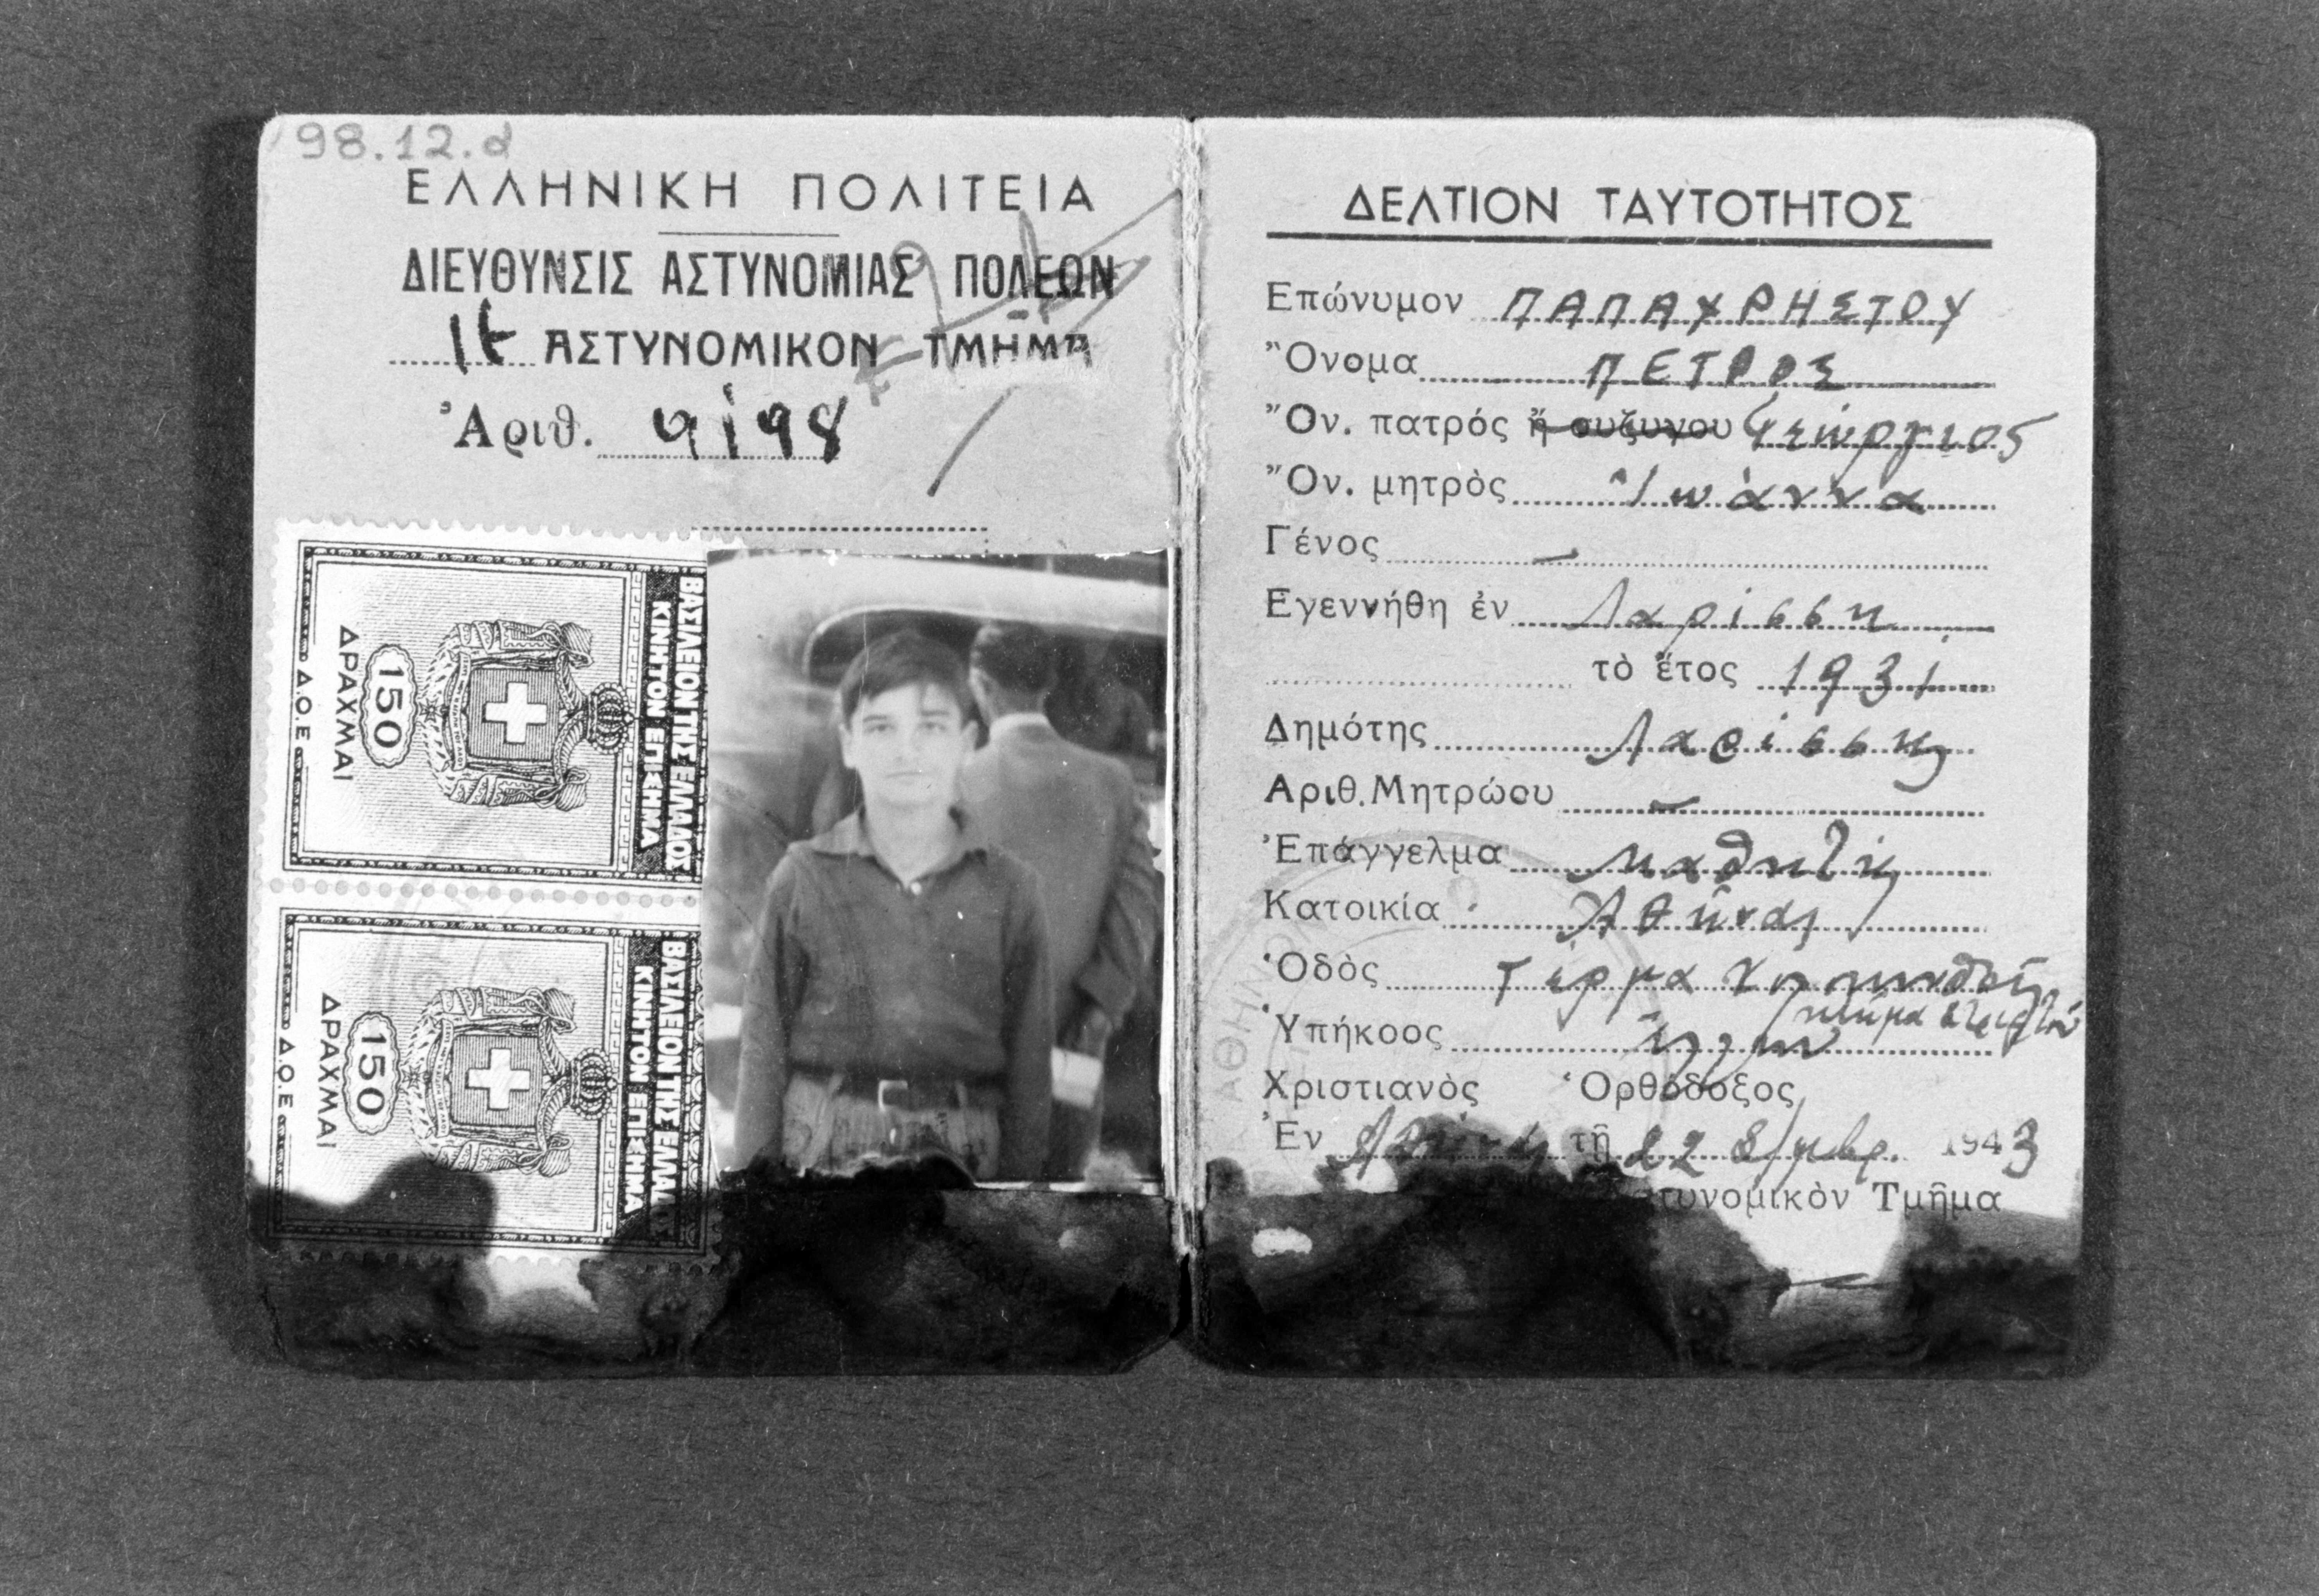 98.12.d
ΕΛΛΗΝΙΚΗ ΠΟΛΙΤΕΙΑ
ΔΙΕΥΘΥΝΣΙΣ ΑΣΤΥΝΟΜΙΑΣ ΠΟΛΕΩΝ
ΑΣΤΥΝΟΜΙΚΟΝ ΤΜΗΜΑ
Ἀριθ.
ΒΑΣΙΛΕΙΟΝ ΤΗΣ ΕΛΛΑΔΟΣ
ΚΙΝΗΤΟΝ ΕΠΙΣΗΜΑ
150
ΔΡΑΧΜΑΙ
Δ.Ο.Ε
ΒΑΣΙΛΕΙΟΝ ΤΗΣ ΕΛΛΑΔΟΣ
ΚΙΝΗΤΟΝ ΕΠΙΣΗΜΑ
150
ΔΡΑΧΜΑΙ
Δ.Ο.Ε
ΔΕΛΤΙΟΝ ΤΑΥΤΟΤΗΤΟΣ
Επώνυμον ΠΑΠΑΧΡΗΣΤΟΥ
Ὄνομα ΠΕΤΡΟΣ
Ὄν. πατρός ἤ συζυγου Γεώργιος
Ὄν. μητρὸς Ἰωάννα
Γένος –
Εγεννήθη ἐν Λαρίσση
τὸ ἔτος 1931
Δημότης Λαρίσσης
Αριθ. Μητρώου –
Ἐπάγγελμα μαθητής
Κατοικία Ἀθήνας
Ὁδὸς Τέρμα
Ὑπήκοος
Χριστιανὸς Ὀρθόδοξος
Ἐν τῇ 22 8/μβρ. 1943
τυνομικὸν Τμῆμα